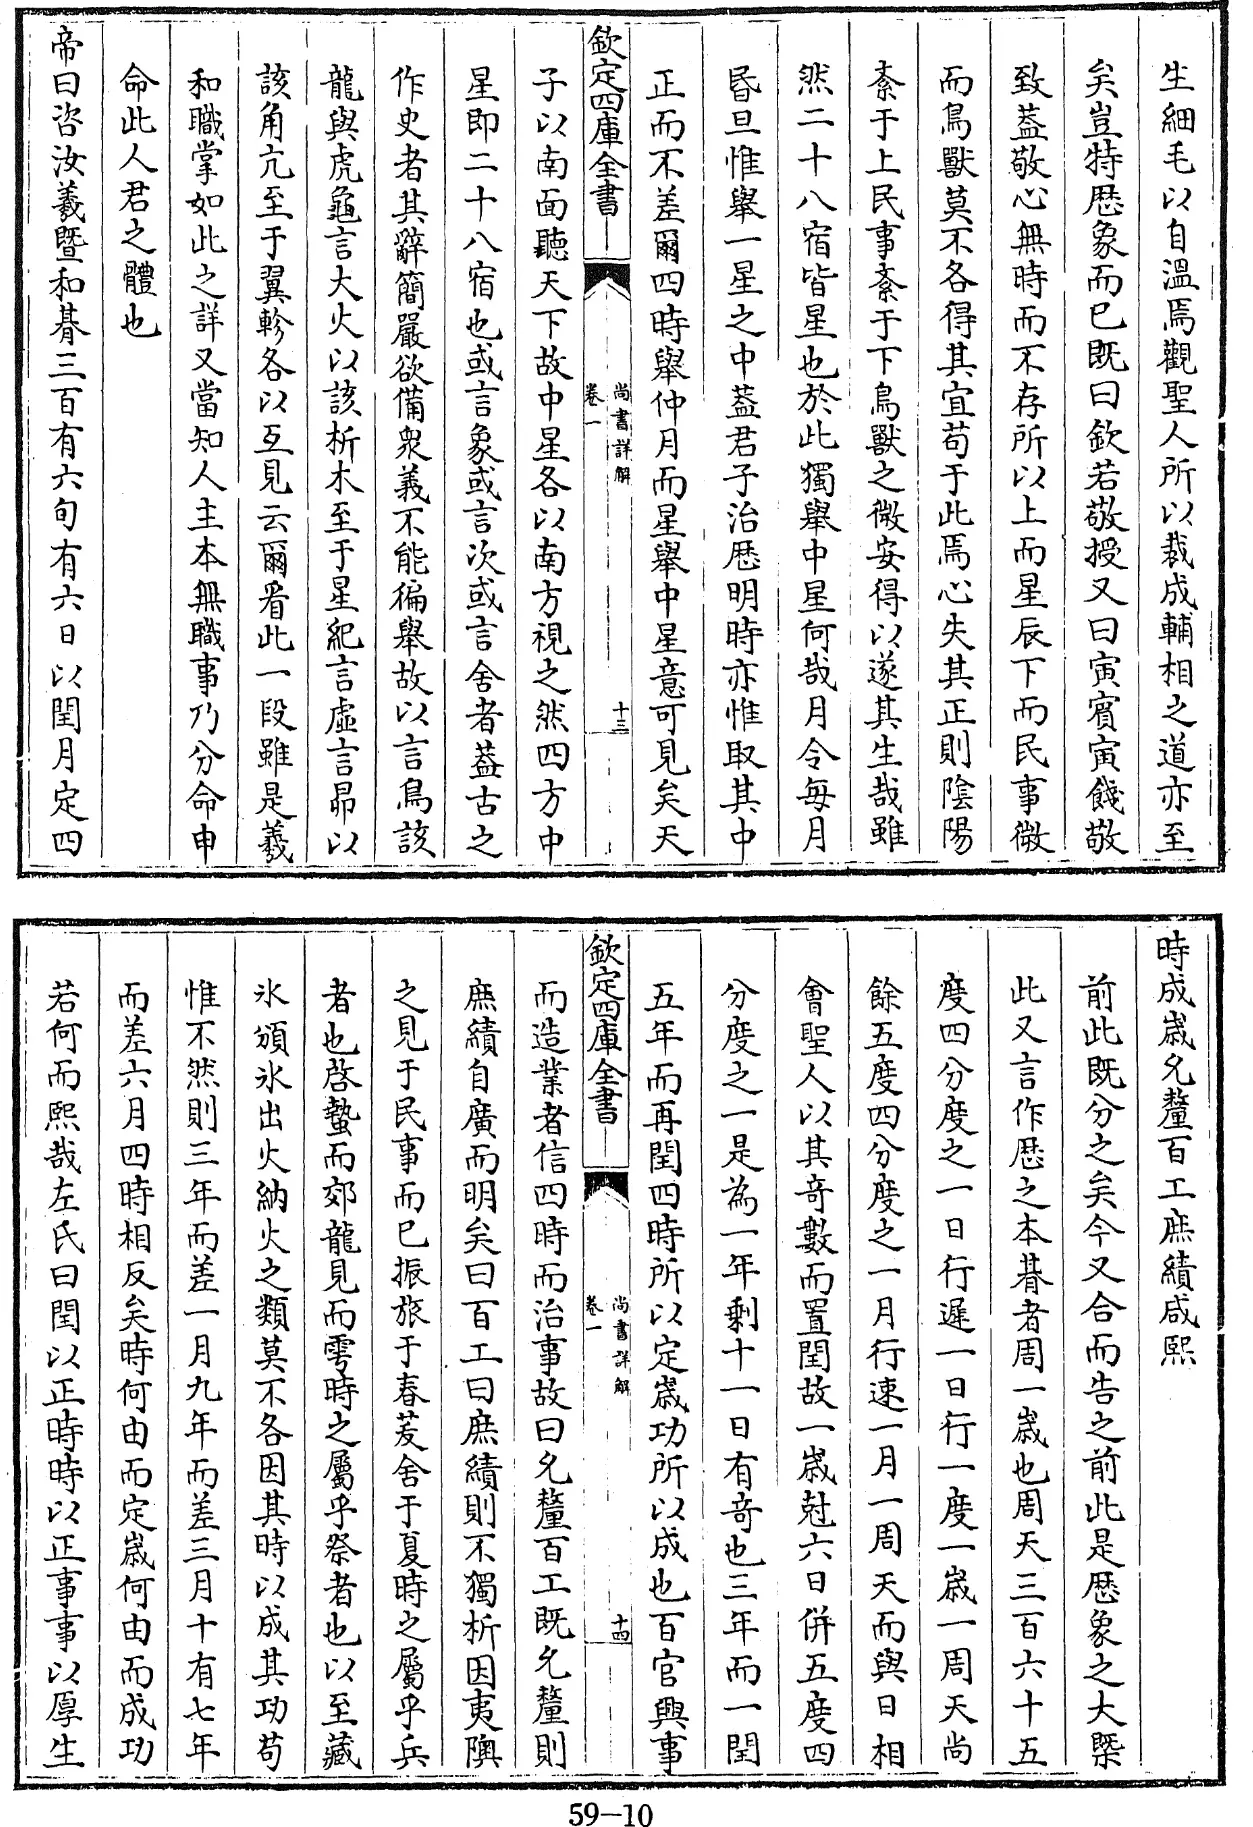 生細毛以自溫焉觀聖人所以裁成輔相之道亦至
矣豈特歴象而已既曰欽若敬授又曰寅賓寅餞敬
致蓋敬心無時而不存所以上而星辰下而民事微
而鳥獸莫不各得其宜苟于此焉心失其正則陰陽
紊于上民事紊于下鳥獸之微安得以遂其生哉雖
然二十八宿皆星也於此獨舉中星何哉月令每月
昏旦惟舉一星之中蓋君子治歴明時亦惟取其中
正而不差爾四時舉仲月而星舉中星意可見矣天
欽定四庫全書
尚書詳解
卷一
十三
子以南面聽天下故中星各以南方視之然四方中
星即二十八宿也或言象或言次或言舍者蓋古之
作史者其辭簡嚴欲備衆義不能徧舉故以言鳥該
龍與虎龜言大火以該析木至于星紀言虛言昴以
該角亢至于翼軫各以互見云爾看此一段雖是羲
和職掌如此之詳又當知人主本無職事乃分命申
命此人君之體也
帝曰咨汝羲暨和朞三百有六旬有六日以閏月定四
時成歲允釐百工庶績咸熙
前此既分之矣今又合而告之前此是歴象之大槩
此又言作歴之本朞者周一歲也周天三百六十五
度四分度之一日行遲一日行一度一歲一周天尚
餘五度四分度之一月行速一月一周天而與日相
會聖人以其奇數而置閏故一歲尅六日併五度四
分度之一是為一年剩十一日有奇也三年而一閏
五年而再閏四時所以定歲功所以成也百官興事
欽定四庫全書
尚書詳解
卷一
十四
而造業者信四時而治事故曰允釐百工既允釐則
庶績自廣而明矣曰百工曰庶績則不獨析因夷隩
之見于民事而已振旅于春茇舍于夏時之屬乎兵
者也啓蟄而郊龍見而雩時之屬乎祭者也以至藏
氷頒氷出火納火之類莫不各因其時以成其功苟
惟不然則三年而差一月九年而差三月十有七年
而差六月四時相反矣時何由而定歲何由而成功
若何而熙哉左氏曰閏以正時時以正事事以厚生
59-10